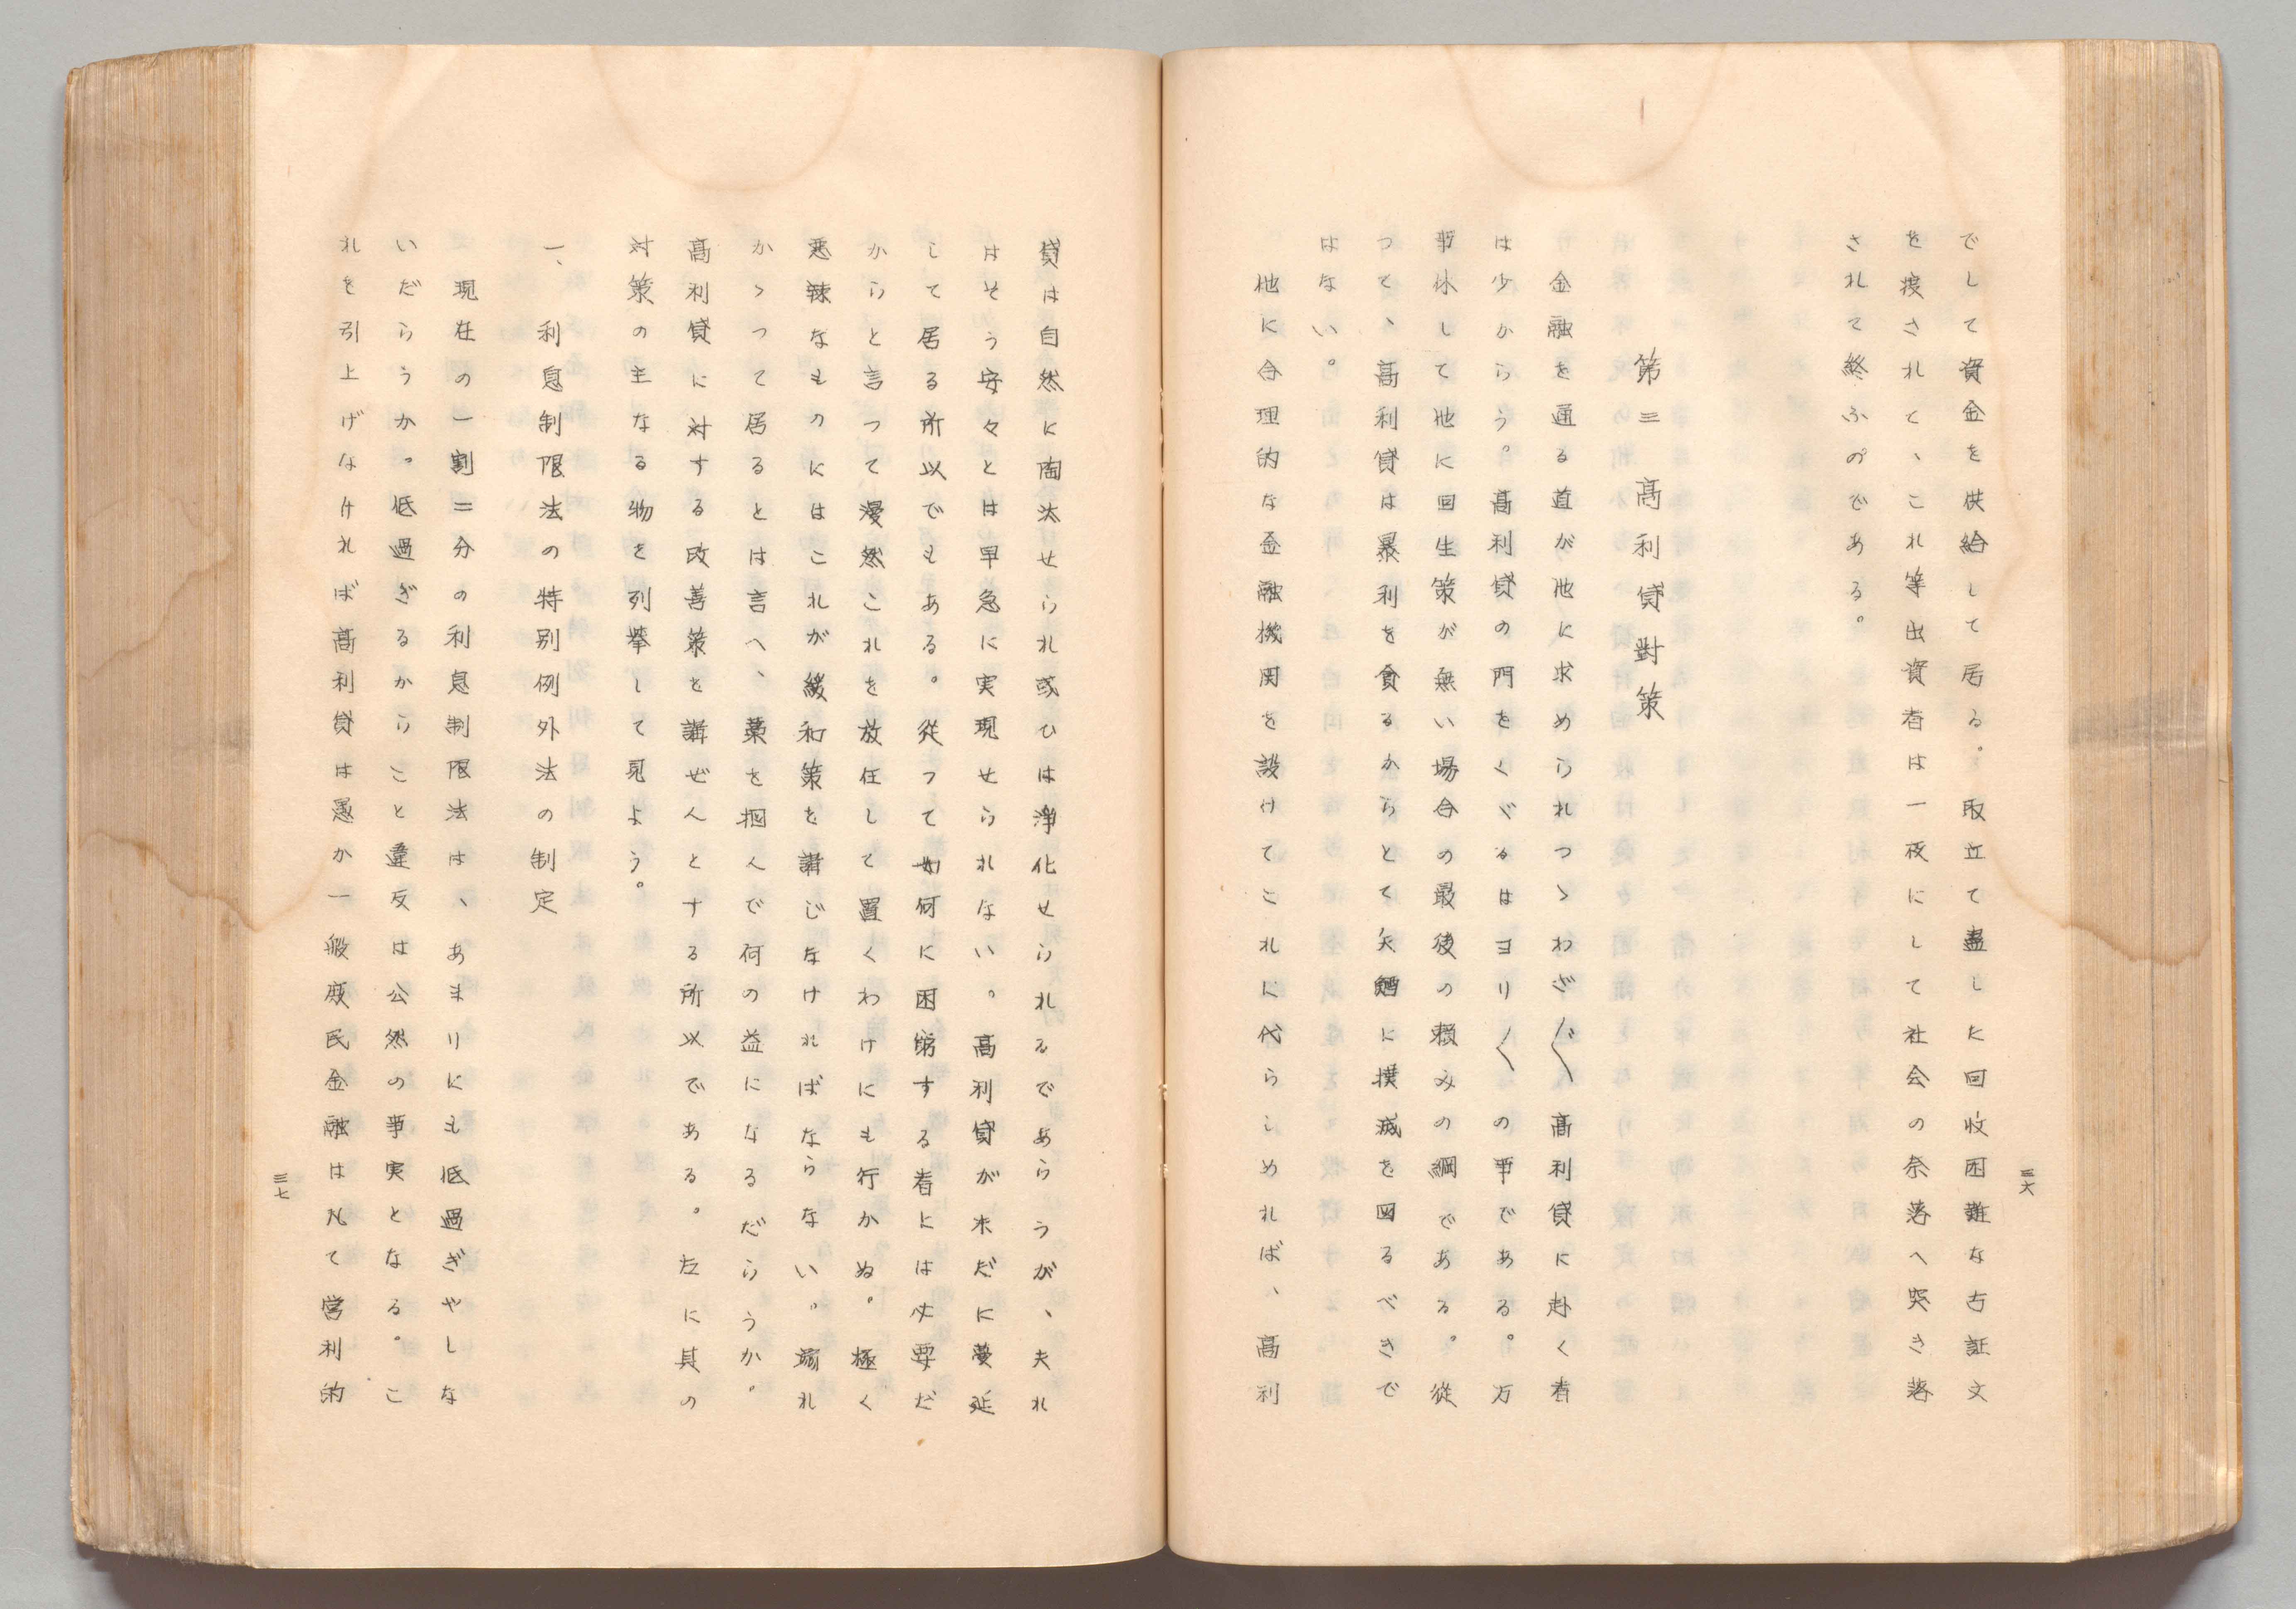 でして資金を供給して居る。取立て盡した回收困難な古証文
を渡されて、これ等出資者は一夜にして社会の奈落へ突き落
されて終ふのである。
第三 高利貸對策
金融を通る道が他に求められつゝわざ〴〵高利貸に赴く者
は少からう。高利貸の門をくぐるはヨリ〳〵の事である。万
事休して他に回生策が無い場合の最後の頼みの綱である。從
つて、高利貸は暴利を貪るからとて矢鱈に撲滅を図るべきで
はない。
他に合理的な金融機関を設けてこれに代らしめれば、高利
三六
貸は自然に陶汰せられ或ひは浄化せられるであらうが、夫れ
はそう安々とは早急に実現せられない。高利貸が未だに蔓延
して居る所以でもある。從つて如何に困窮する者には必要だ
からと言つて漫然これを放任して置くわけにも行かぬ。極く
悪辣なものにはこれが緩和策を講じなければならない。溺れ
かゝつて居るとは言へ、藁を掴んで何の益になるだらうか。
高利貸に対する改善策を講ぜんとする所以である。左に其の
対策の主なる物を列挙して見よう。
一、利息制限法の特別例外法の制定
現在の一割二分の利息制限法は、あまりにも低過ぎやしな
いだらうか。低過ぎるからこと違反は公然の事実となる。こ
れを引上げなければ高利貸は愚か一般庶民金融は凡て営利的
三七